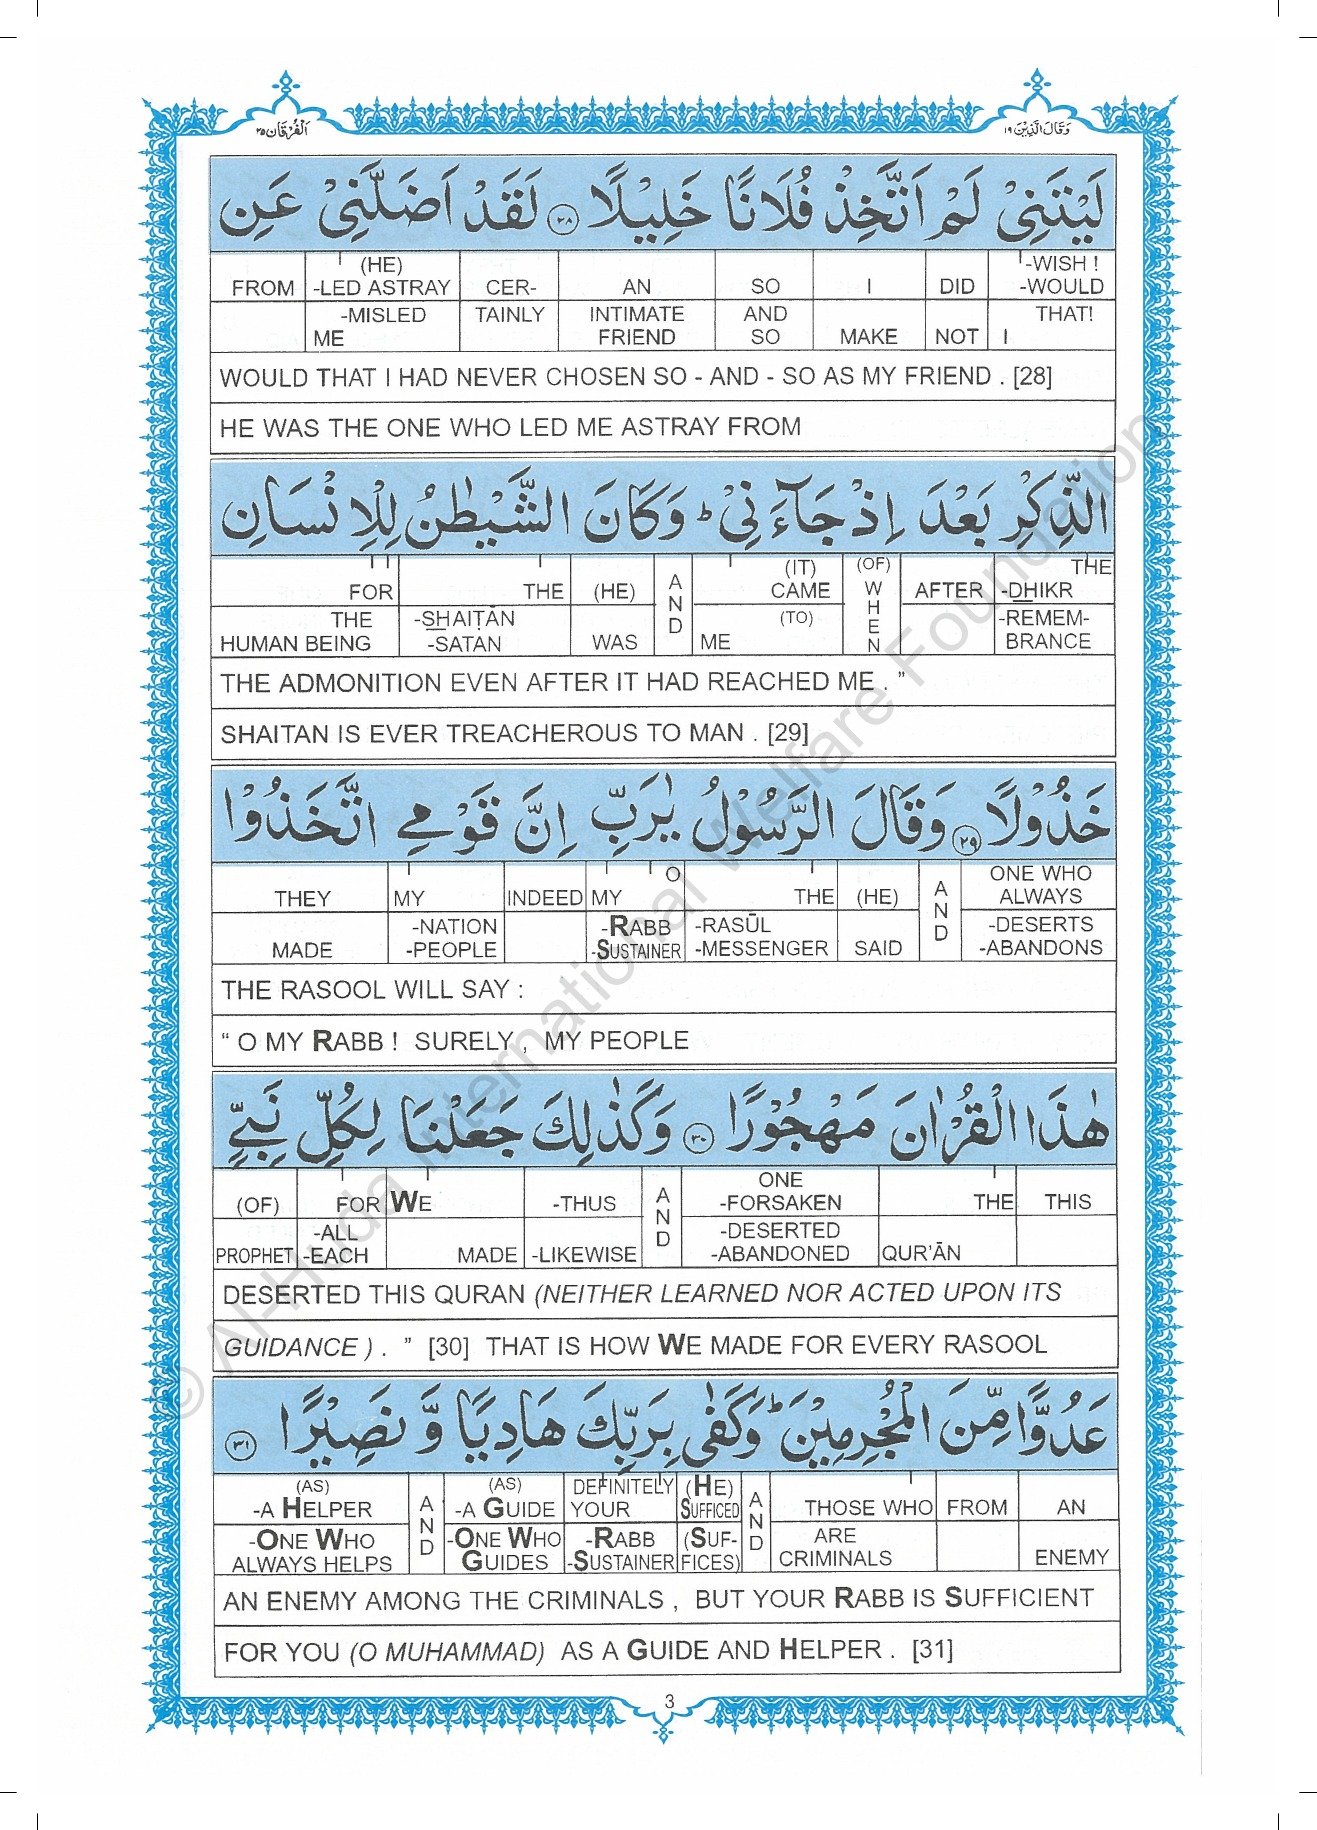 اَلْفُرْقَان ٢٥
وَقَالَ الَّذِيْنَ ١٩
لَيْتَنِيْ لَمْ اَتَّخِذْ فُلَانًا خَلِيْلًا ٢٨ لَقَدْ اَضَلَّنِيْ عَنِ
FROM | (HE) -LED ASTRAY | CER- | AN | SO | I | DID | -WISH ! -WOULD
-MISLED ME | TAINLY | INTIMATE FRIEND | AND SO | MAKE | NOT | THAT! I
WOULD THAT I HAD NEVER CHOSEN SO - AND - SO AS MY FRIEND . [28]
HE WAS THE ONE WHO LED ME ASTRAY FROM
الذِّكْرِ بَعْدَ اِذْ جَآءَنِيْ ؕ وَكَانَ الشَّيْطٰنُ لِلْاِنْسَانِ
FOR | THE | (HE) | AND | (IT) CAME | (OF) WHEN | AFTER | THE -DHIKR
THE HUMAN BEING | -SHAIṬĀN -SATAN | WAS | (TO) ME | -REMEM- BRANCE
THE ADMONITION EVEN AFTER IT HAD REACHED ME . ”
SHAITAN IS EVER TREACHEROUS TO MAN . [29]
خَذُوْلًا ٢٩ وَقَالَ الرَّسُوْلُ يٰرَبِّ اِنَّ قَوْمِي اتَّخَذُوْا
THEY | MY | INDEED | MY O | THE | (HE) | AND | ONE WHO ALWAYS
MADE | -NATION -PEOPLE | -RABB -SUSTAINER | -RASŪL -MESSENGER | SAID | -DESERTS -ABANDONS
THE RASOOL WILL SAY :
“ O MY RABB ! SURELY , MY PEOPLE
هٰذَا الْقُرْاٰنَ مَهْجُوْرًا ٣٠ وَكَذٰلِكَ جَعَلْنَا لِكُلِّ نَبِيٍّ
(OF) | FOR | WE | -THUS | AND | ONE -FORSAKEN | THE | THIS
PROPHET | -ALL -EACH | MADE | -LIKEWISE | -DESERTED -ABANDONED | QUR’ĀN
DESERTED THIS QURAN (NEITHER LEARNED NOR ACTED UPON ITS
GUIDANCE ) . ” [30] THAT IS HOW WE MADE FOR EVERY RASOOL
عَدُوًّا مِّنَ الْمُجْرِمِيْنَ ؕ وَكَفٰى بِرَبِّكَ هَادِيًا وَّ نَصِيْرًا ٣١
(AS) -A HELPER | AND | (AS) -A GUIDE | DEFINITELY YOUR | (HE) SUFFICED | AND | THOSE WHO | FROM | AN
-ONE WHO ALWAYS HELPS | -ONE WHO GUIDES | -RABB -SUSTAINER | (SUF- FICES) | ARE CRIMINALS | ENEMY
AN ENEMY AMONG THE CRIMINALS , BUT YOUR RABB IS SUFFICIENT
FOR YOU (O MUHAMMAD) AS A GUIDE AND HELPER . [31]
3
© Al-Huda International Welfare Foundation